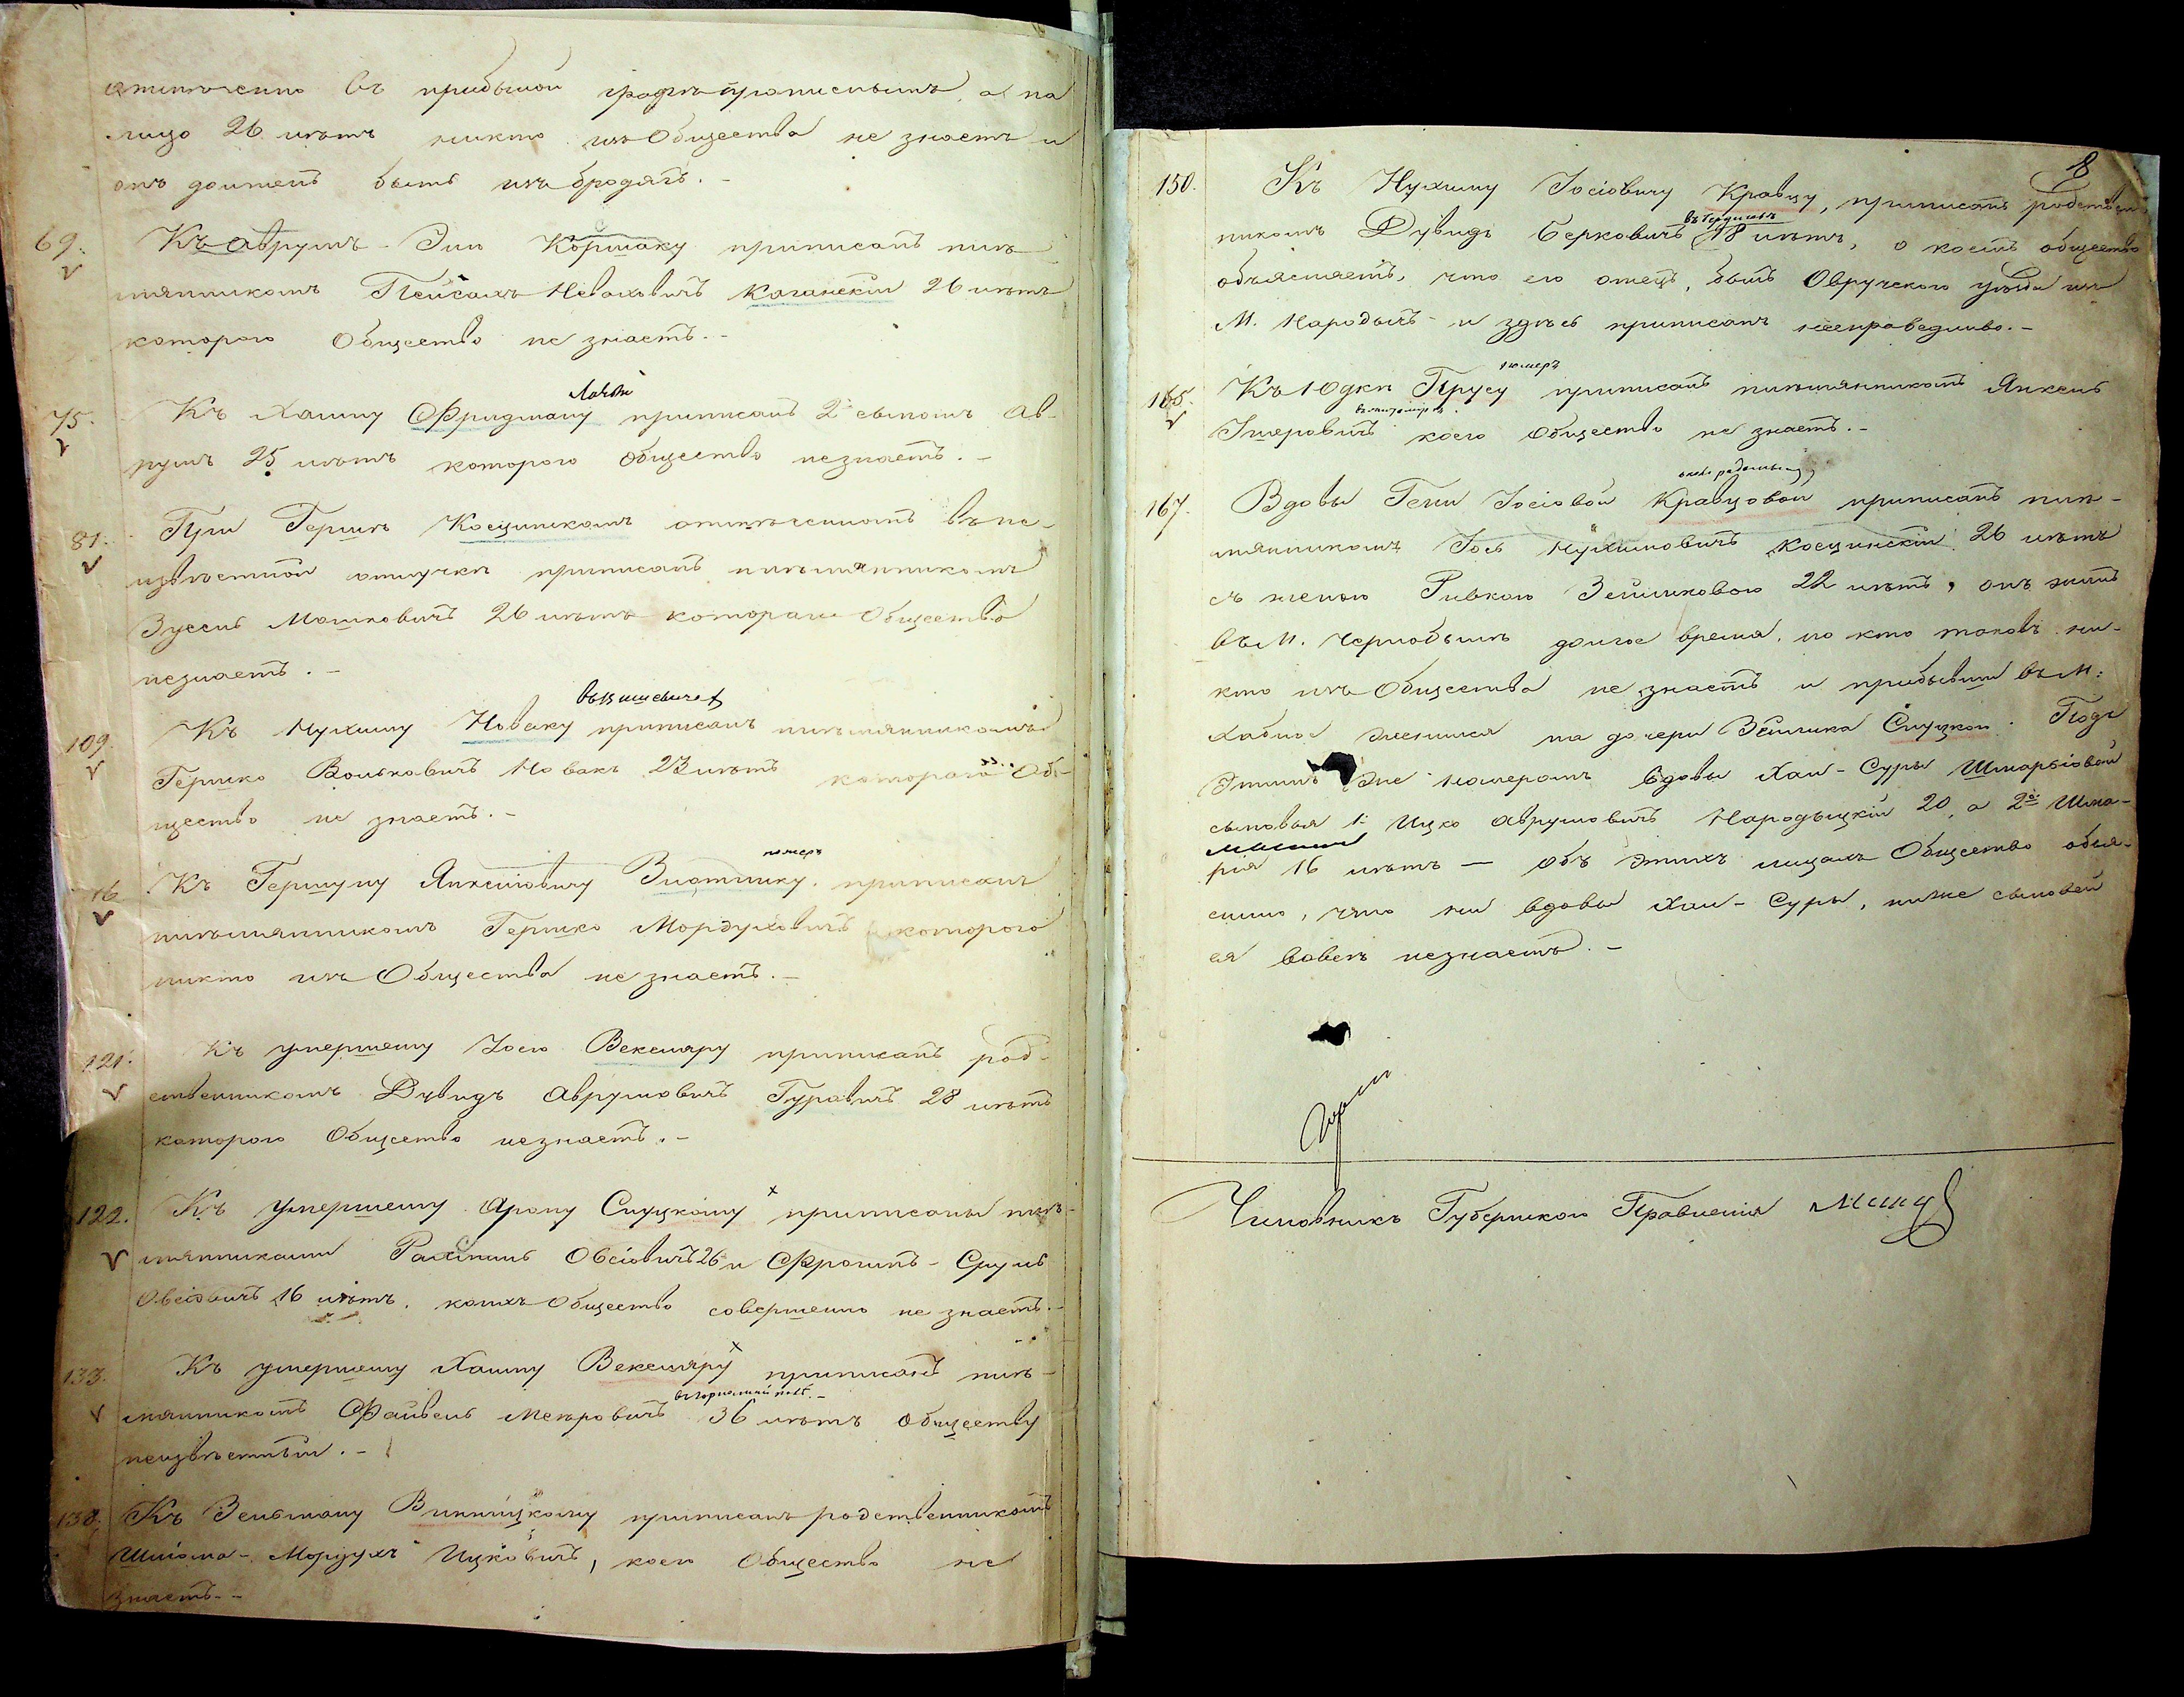 отмѣчено въ прибылой графѣ прописнымъ, а на
лицо 26 лѣтъ никто изъ Общества не знаетъ и
онъ долженъ быть изъ бродягъ. -
69. Къ Аврумъ-Элю Коршаку приписанъ пле-
мянникомъ Пейсахъ Неваховичъ Каганскій 26 лѣтъ
котораго Общество не знаетъ. -
75. Къ Хаиму Фридману приписанъ 2й сыномъ Ав-
румъ 25 лѣтъ котораго Общество незнаетъ. -
81. При Гершкѣ Косцинскомъ отмѣченномъ въ не-
извѣстной отлучкѣ приписанъ племянникомъ
Зусель Мошковичъ 26 лѣтъ котораго Общество
незнаетъ. -
109. Къ Нухиму Новаку приписанъ племянникомъ
Гершко Вольковичъ Новакъ 23 лѣтъ котораго Об-
щество не знаетъ. -
16 Къ Гершуну Янкелiовичу приписанъ
померъ
племянникомъ Гершко Мордуховичъ котораго
никто изъ Общества не знаетъ. -
121. Къ умершему Іосю Вексляру приписанъ род-
ственникомъ Дувидъ Аврумовичъ Гуравичъ 28 лѣтъ
котораго Общество незнаетъ. -
122. Къ умершему Арону Слуцкому приписаны пле-
мянниками Овсіовичъ 26 и Фроимъ-Сруль
Овсіовичъ 16 лѣтъ, коихъ Общество совершенно не знаетъ. -
133. Къ умершему Хаиму Вексляру приписанъ пле-
мянникомъ Файвель Меѣровичъ 36 лѣтъ Обществу
неизвѣстный. -
138. Къ Зельману Винницкому приписанъ родственникомъ
Шлiома-Мордухъ Ицковичъ, коего Общество не
знаетъ. -
8
150. Къ Нухиму Іосіовичу Кравцу, приписанъ родствен-
никомъ Дувидъ Берковичъ 18 лѣтъ, о коемъ общество
объясняетъ, что его отецъ, былъ Овручскаго уѣзда изъ
М. Народычъ и здѣсь приписанъ несправедливо. -
померъ
165. Къ Юдкѣ Прусу приписанъ племянникомъ Янкель
въ житомирѣ
коего Общество не знаетъ. -
167. Вдовы Гени Іосіовой Кравцовой приписанъ пле-
мянникомъ Іось Нухимовичъ Косцинскій 26 лѣтъ
съ женою Ривкою Зейликовою 22 лѣтъ, онъ жилъ
въ М. Чернобылѣ долгое время, но кто таковъ ни-
кто изъ Общества не знаетъ и прибывши въ М:
Хабное женился на дочери Зейлика Слуцкой. Подъ
этимъ же номеромъ вдовы Хаи-Суры Шмарiовой
сыновья 1й Ицко Аврумовичъ Народыцкій 20, а 2й Шма-
рiя 16 лѣтъ — объ этихъ лицахъ Общество объя-
снило, что ни вдовы Хаи-Суры, ниже сыновей
ея вовсе незнаетъ. -
Чиновникъ Губернскаго Правленія